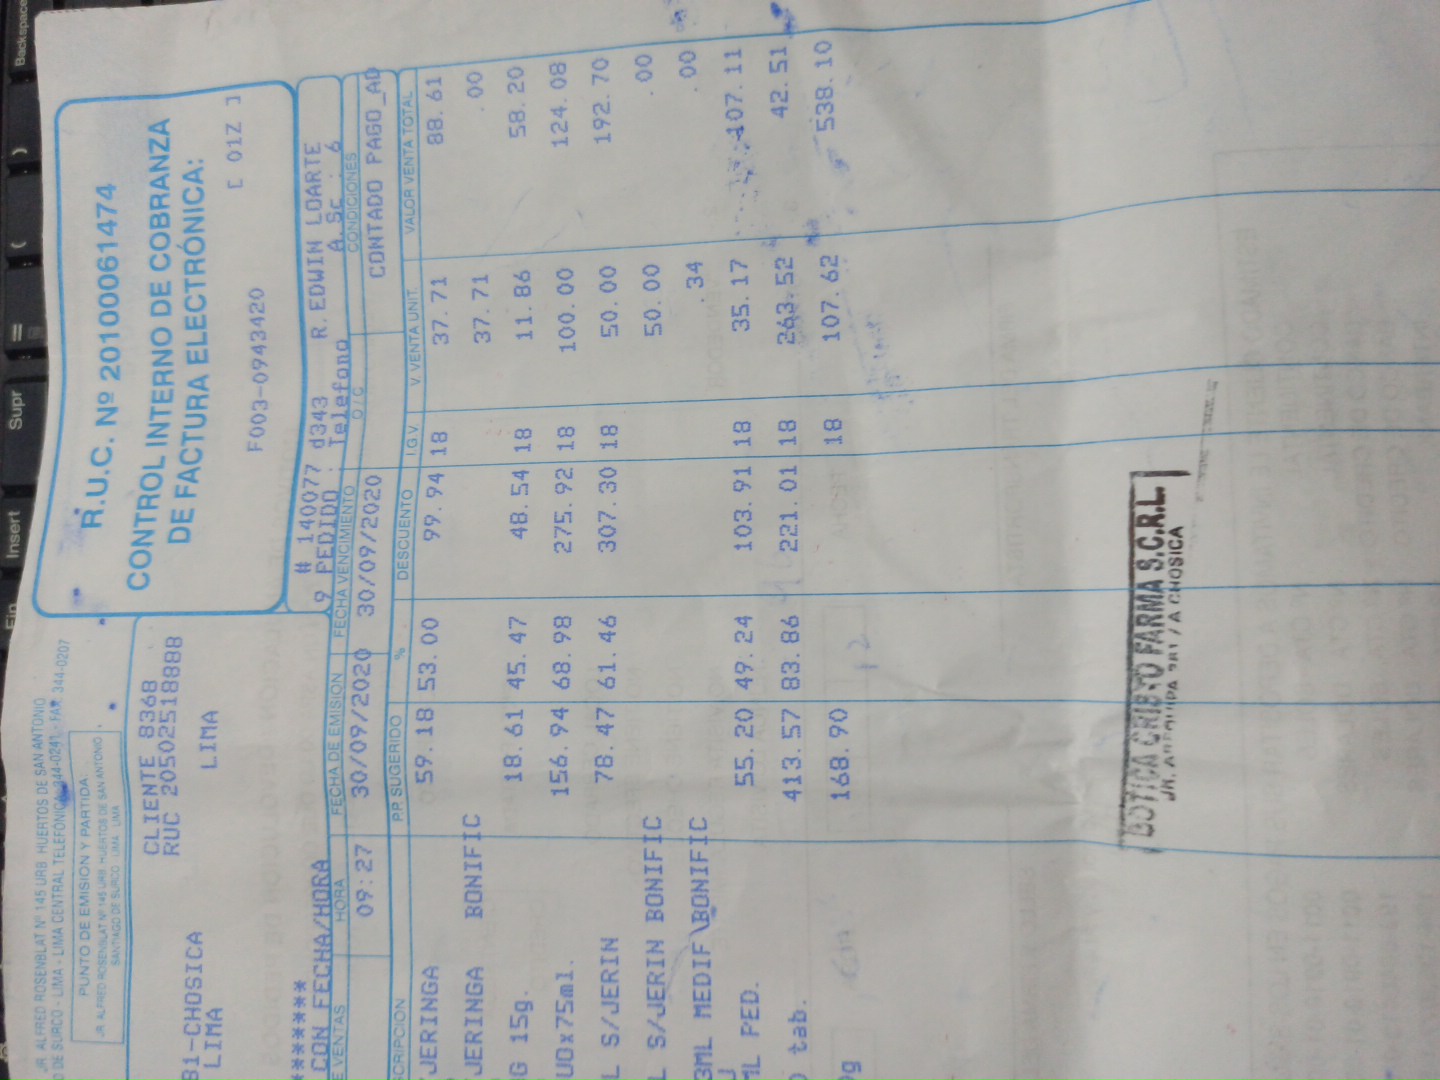 JR. ALFRED ROSENBLAT Nº 145 URB. HUERTOS DE SAN ANTONIO
O DE SURCO - LIMA - LIMA CENTRAL TELEFÓNICA: 344-0241 - FAX 344-0207
PUNTO DE EMISION Y PARTIDA
JR. ALFRED ROSENBLAT Nº 145 URB. HUERTOS DE SAN ANTONIO
SANTIAGO DE SURCO - LIMA - LIMA
R.U.C. Nº 20100061474
CONTROL INTERNO DE COBRANZA
DE FACTURA ELECTRÓNICA:
F003-0943420 [ 01Z ]
CLIENTE 8368
B1-CHOSICA RUC 20502518888
LIMA LIMA
# 140077 d343 R. EDWIN LOARTE
******* 9 PEDIDO. Telefono A.Sc : 6
CON FECHA/HORA
E VENTAS HORA FECHA DE EMISION FECHA VENCIMIENTO O/C CONDICIONES
09:27 30/09/2020 30/09/2020 CONTADO PAGO_AD
SCRIPCION P.P. SUGERIDO % DESCUENTO I.G.V. V. VENTA UNIT. VALOR VENTA TOTAL
/JERINGA 59.18 53.00 99.94 18 37.71 88.61
/JERINGA BONIFIC 37.71 .00
G 15g. 18.61 45.47 48.54 18 11.86 58.20
UOx75ml. 156.94 68.98 275.92 18 100.00 124.08
L S/JERIN 78.47 61.46 307.30 18 50.00 192.70
L S/JERIN BONIFIC 50.00 .00
3ML MEDIF\BONIFIC .34 .00
ML PED. 55.20 49.24 103.91 18 35.17 107.11
) tab. 413.57 83.86 221.01 18 263.52 42.51
g 168.90 18 107.62 538.10
BOTICA CRISTO FARMA S.C.R.L.
JR. AREQUIPA 281 / A CHOSICA
Backspace
Supr
Insert
Fin